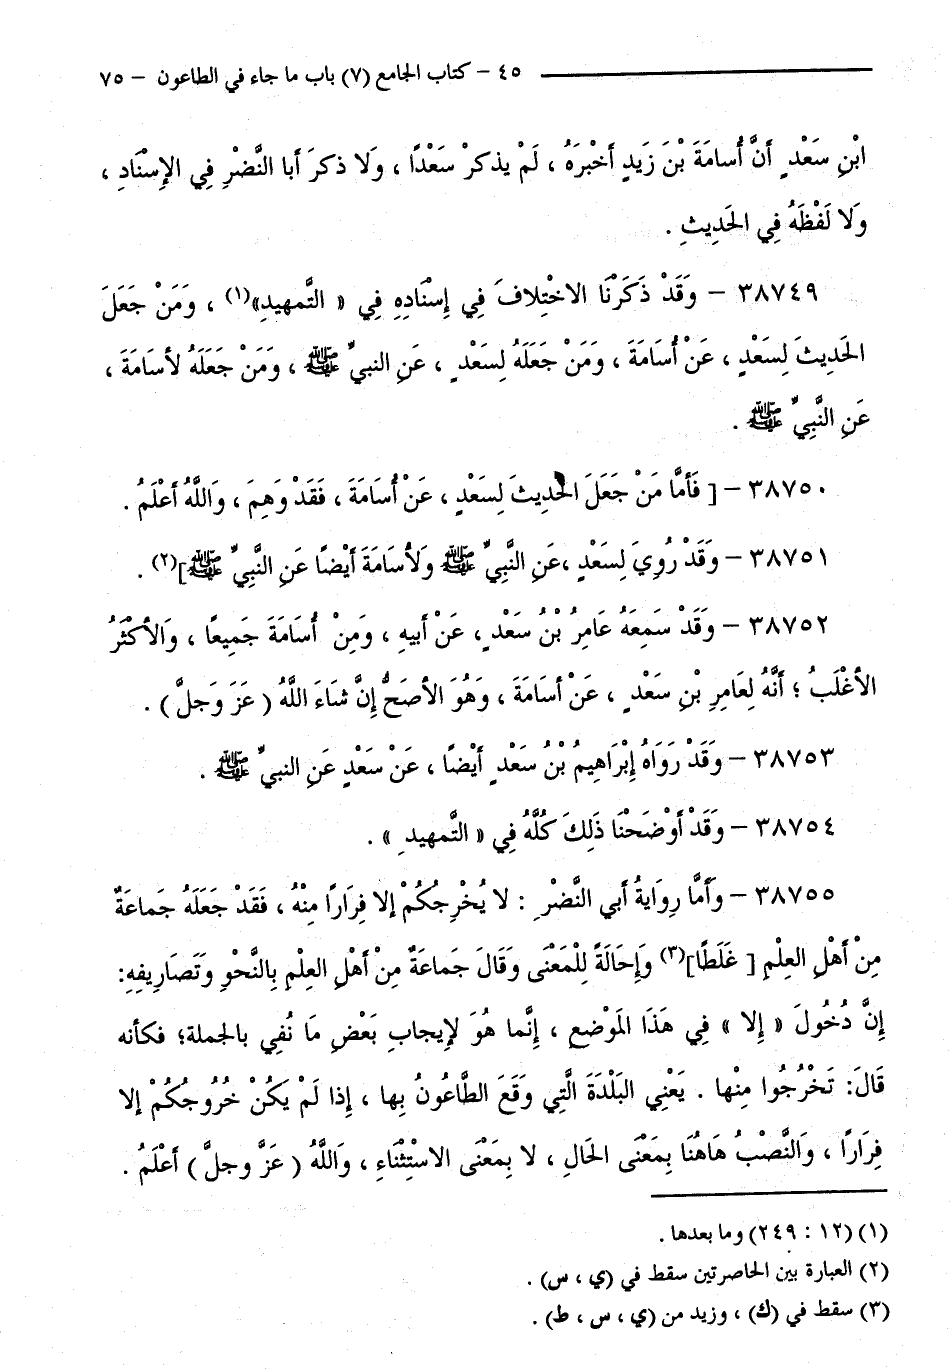 ٤٥ - كتاب الجامع (٧) باب ما جاء في الطاعون - ٧٥
ابْنِ سَعْدٍ أَنَّ أُسامَةَ بْنَ زَيدٍ أَخْبرَهُ ، لَمْ يذكرْ سَعْدًا ، وَلا ذكرَ أبا النَّضْرِ فِي الإِسْنَادِ ،
وَلا لَفْظَهُ فِي الحَدِيثِ .
٣٨٧٤٩ - وَقَدْ ذَكَرْنَا الاخْتِلافَ فِي إِسْنَادِهِ فِي « التَّمهيدِ»(١) ، وَمَنْ جَعَلَ
الحَدِيثَ لِسَعْدٍ ، عَنْ أُسَامَةَ ، وَمَنْ جَعَلَهُ لِسعْدٍ ، عَنِ النبيِّ ﷺ ، وَمَنْ جَعَلَهُ لأسَامَةَ ،
عَنِ النَّبِيِّ ﷺ .
٣٨٧٥٠ - [ فَأَمَّا مَنْ جَعَلَ الحَديثَ لِسَعْدٍ ، عَنْ أُسَامَةَ ، فَقَدْ وَهِمَ ، وَاللَّهُ أعْلَمُ .
٣٨٧٥١ - وَقَدْ رُوِيَ لِسَعْدٍ ،عَنِ النَّبِيِّ ﷺ وَلأُسَامَةَ أيْضًا عَنِ النَّبِيِّ ﷺ](٢) .
٣٨٧٥٢ - وَقَدْ سَمِعَهُ عَامِرُ بْنُ سَعْدٍ ، عَنْ أَبيهِ ، وَمِنْ أُسَامَةَ جَمِيعًا ، وَالأكْثَرُ
الأغْلَبُ ؛ أَنَّهُ لِعَامِرِ بْنِ سَعْدٍ ، عَنْ أسَامَةَ ، وَهُوَ الأصَحُّ إِنَّ شَاءَ اللَّهُ ( عَزَ وَجلَّ ) .
٣٨٧٥٣ - وَقَدْ رَوَاهُ إِبْرَاهِيمُ بْنُ سَعْدٍ أيْضًا ، عَنْ سَعْدٍ عَنِ النبيِّ ﷺ .
٣٨٧٥٤ - وَقَدْ أَوْضَحْنَا ذَلِكَ كُلَّهُ فِي « التَّمهيدِ » .
٣٨٧٥٥ - وَأَمَّا رِوَايةُ أَبي النَّضْرِ : لا يُخْرِجكُمْ إلا فِرَارًا مِنْهُ ، فَقَدْ جَعَلَهُ جَماعَةٌ
مِنْ أهْلِ العِلْمِ [ غَلَطًا](٣) وَإِحَالَةً لِلْمَعْنَى وَقَالَ جَماعَةٌ مِنْ أهْلِ العِلْمِ بِالنَّحْوِ وَتَصَارِيفِهِ:
إِنَّ دُخُولَ « إِلا » فِي هَذَا المَوْضعِ ، إِنَّما هُوَ لإِيجابِ بَعْضِ مَا نُفِي بالجملة؛ فكأنه
قَالَ: تَخْرُجُوا مِنْها . يَعْنِي البَلْدَةَ الَّتِي وَقَعَ الطَّاعُونُ بِها ، إِذا لَمْ يَكُنْ خُرُوجُكُمْ إلا
فِرَارًا ، وَالنَّصْبُ هَاهُنَا بِمَعْنَى الحَالِ ، لا بِمَعْنَى الاسْتِثْنَاءِ ، وَاللَّهُ ( عَزَّ وجلَّ ) أعْلَمُ .
(١) (١٢ : ٢٤٩) وما بعدها .
(٢) العبارة بين الحاصرتين سقط في (ي ، س) .
(٣) سقط في (ك) ، وزيد من (ي ، س ، ط) .